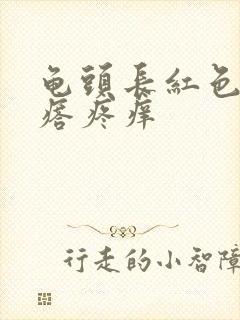 龟頭長紅色
瘩疼痒
行走的小智障